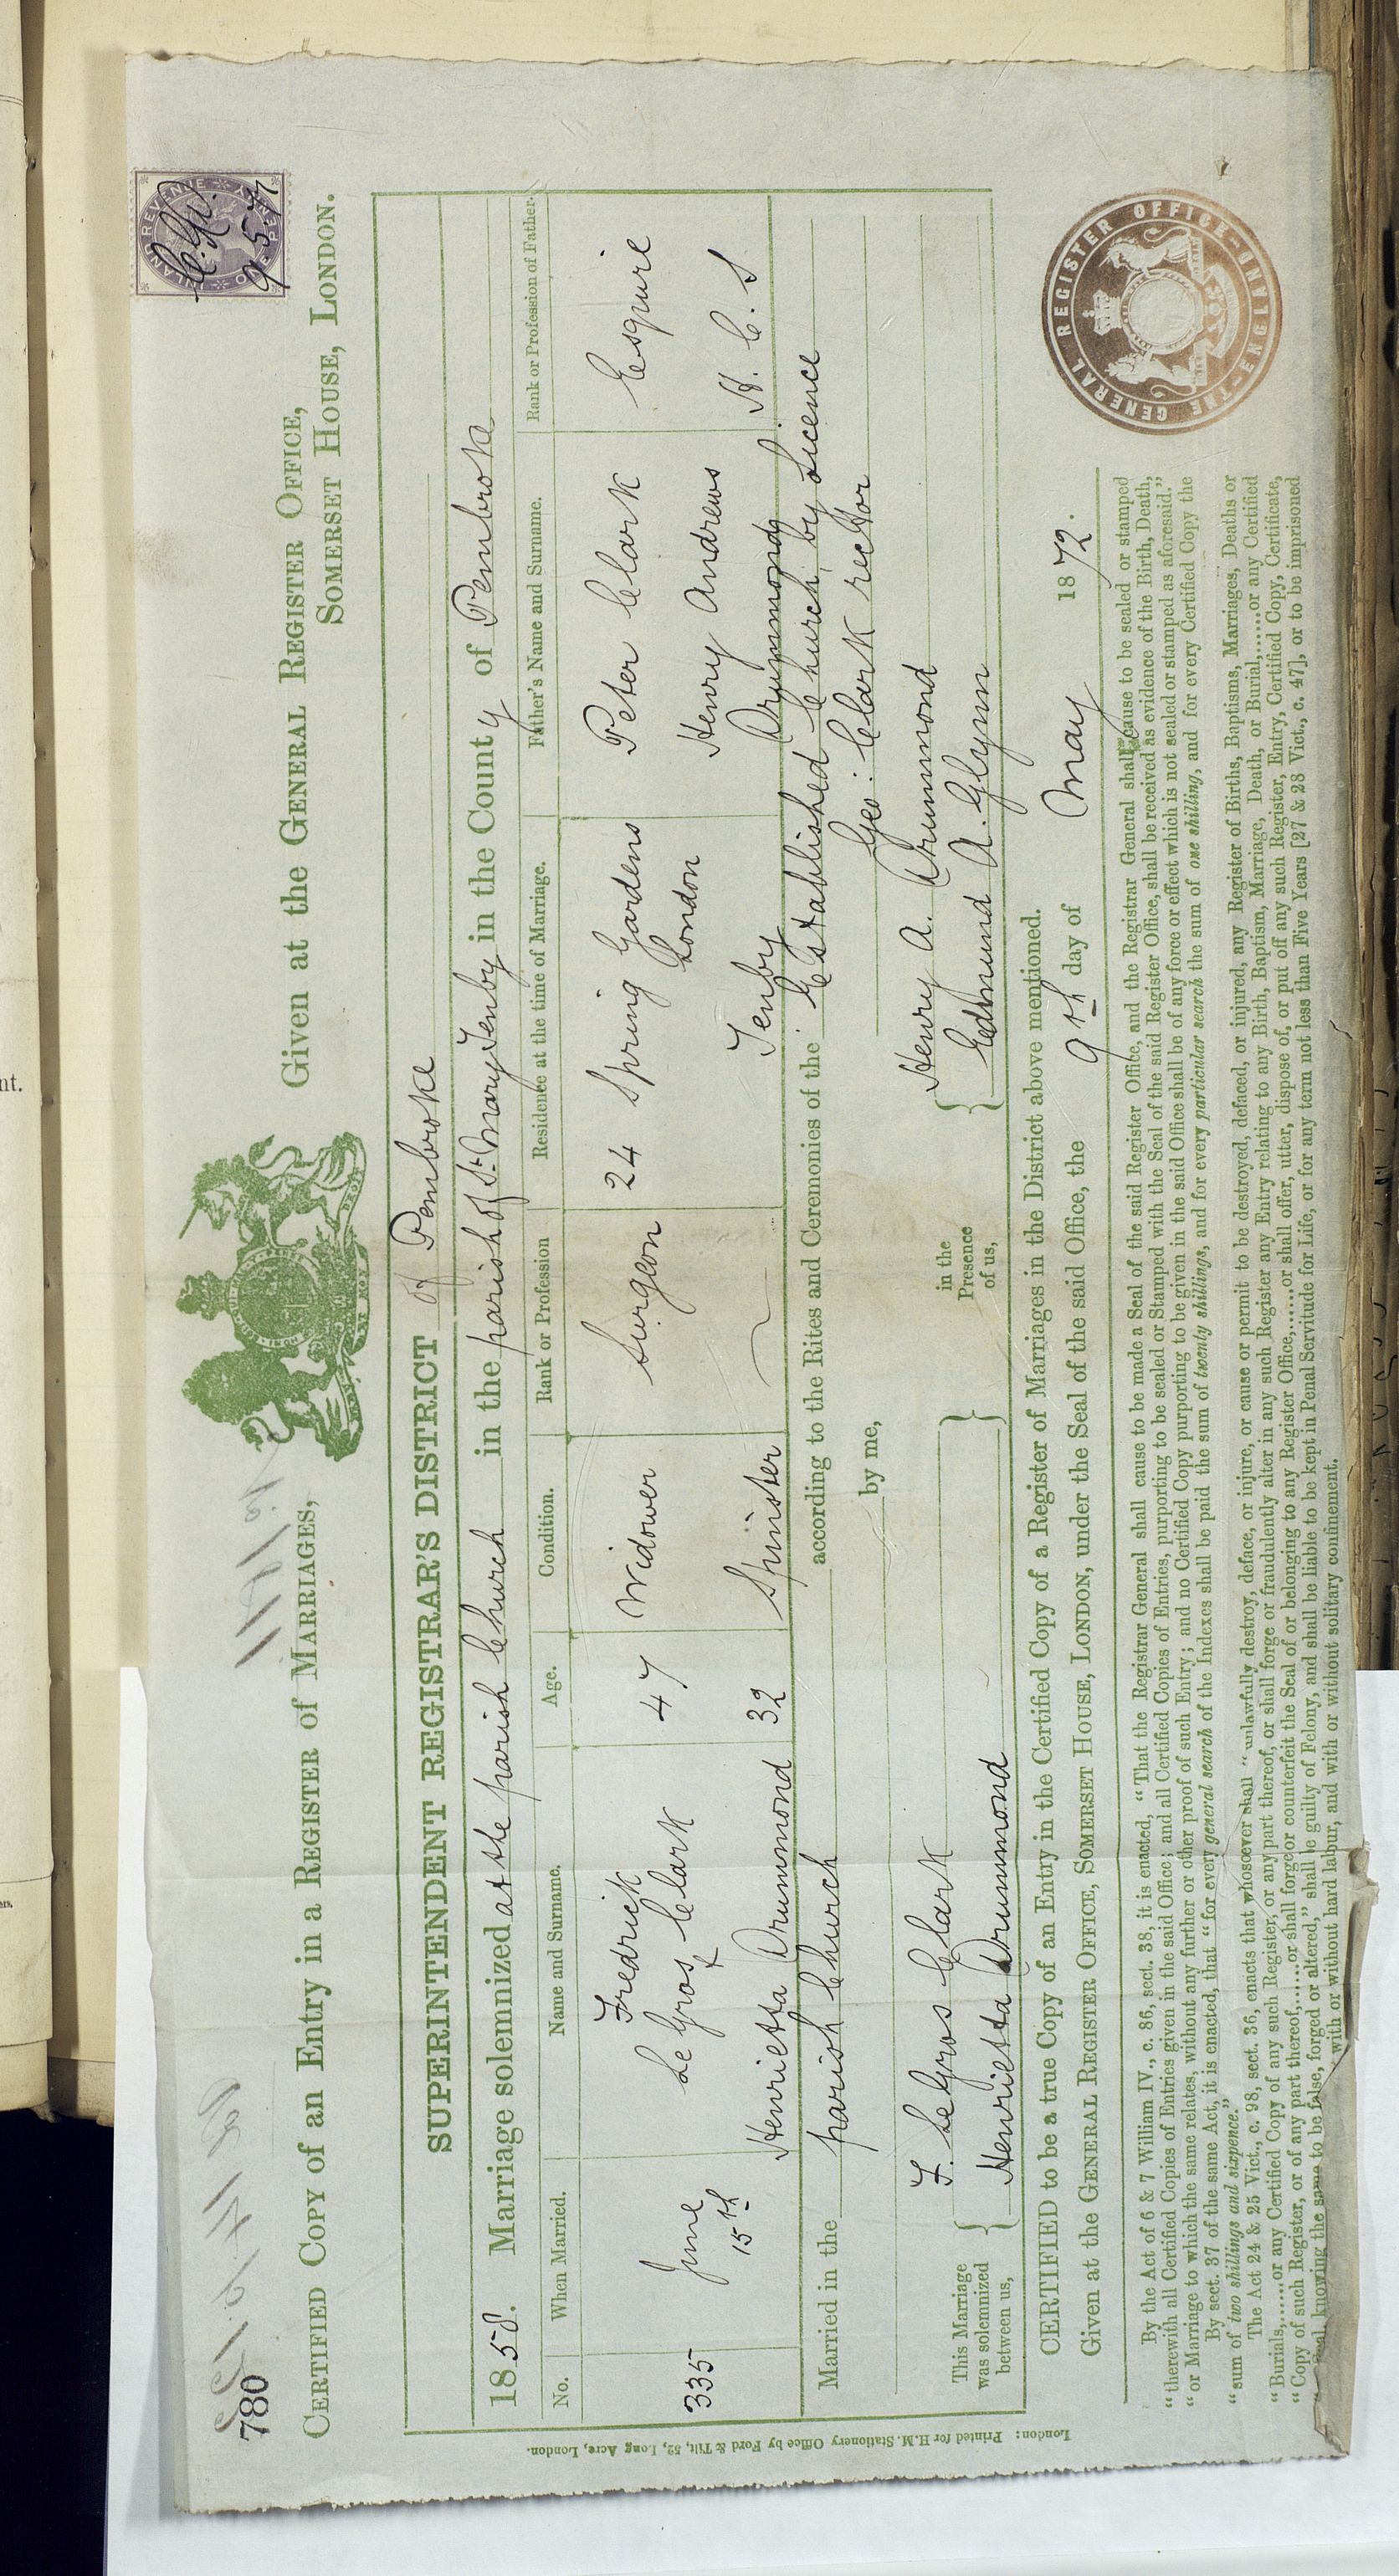 780
CERTIFIED COPY of an Entry in a REGISTER of MARRIAGES,
Given at the GENERAL REGISTER OFFICE,
SOMERSET HOUSE, LONDON.
INLAND REVENUE
PENNY
9 5 7
SUPERINTENDENT REGISTRAR'S DISTRICT of Pembroke
1858. Marriage solemnized at the parish Church in the parish of St. Mary Tenby in the County of Pembroke
No. When Married. Name and Surname. Age. Condition. Rank or Profession Residence at the time of Marriage. Father's Name and Surname. Rank or Profession of Father.
335
June
15th
Fredrick
Le Gros Clark
47
Widower
Surgeon
24 Spring Gardens
London
Peter Clark
Esquire
Henrietta Drummond
32
Spinster
Tenby
Henry Andrews
Drummond
H. C. S
Married in the parish Church according to the Rites and Ceremonies of the Established Church, by Licence
by me, Geo: Clark rector
This Marriage
was solemnized
between us,
F. Le Gros Clark
Henrietta Drummond
in the
Presence
of us,
Henry A. Drummond
Edmund A. Glynn
CERTIFIED to be a true Copy of an Entry in the Certified Copy of a Register of Marriages in the District above mentioned.
Given at the GENERAL REGISTER OFFICE, SOMERSET HOUSE, LONDON, under the Seal of the said Office, the 9th day of May 1872.
By the Act of 6 & 7 William IV., c. 86, sect. 38, it is enacted, "That the Registrar General shall cause to be made a Seal of the said Register Office, and the Registrar General shall cause to be sealed or stamped
"therewith all Certified Copies of Entries given in the said Office; and all Certified Copies of Entries, purporting to be sealed or Stamped with the Seal of the said Register Office, shall be received as evidence of the Birth, Death,
"or Marriage to which the same relates, without any further or other proof of such Entry; and no Certified Copy purporting to be given in the said Office shall be of any force or effect which is not sealed or stamped as aforesaid."
By sect. 37 of the same Act, it is enacted, that "for every general search of the Indexes shall be paid the sum of twenty shillings, and for every particular search the sum of one shilling, and for every Certified Copy the
"sum of two shillings and sixpence."
The Act 24 & 25 Vict., c. 98, sect. 36, enacts that whosoever shall "unlawfully destroy, deface, or injure, or cause or permit to be destroyed, defaced, or injured, any Register of Births, Baptisms, Marriages, Deaths or
"Burials,......or any Certified Copy of any such Register, or any part thereof, or shall forge or fraudulently alter in any such Register any Entry relating to any Birth, Baptism, Marriage, Death, or Burial,......or any Certified
"Copy of such Register, or of any part thereof,......or shall forge or counterfeit the Seal of or belonging to any Register Office,......or shall offer, utter, dispose of, or put off any such Register, Entry, Certified Copy, Certificate,
Seal, knowing the same to be false, forged or altered," shall be guilty of Felony, and shall be liable to be kept in Penal Servitude for Life, or for any term not less than Five Years [27 & 28 Vict., c. 47], or to be imprisoned
with or without hard labour, and with or without solitary confinement.
London: Printed for H.M. Stationery Office by Ford & Tilt, 52, Long Acre, London.
THE GENERAL REGISTER OFFICE ENGLAND